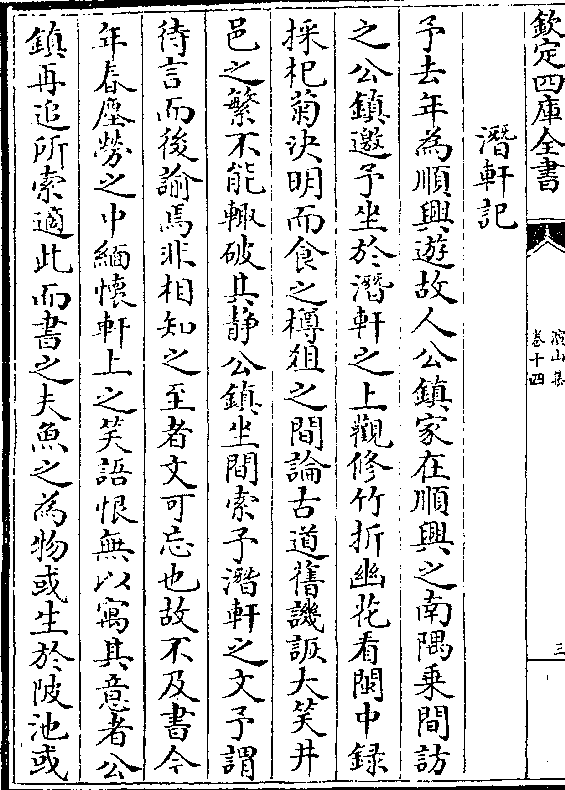 欽定四庫全書
演山集
卷十四
三
潛軒記
予去年為順興遊故人公鎮家在順興之南隅乗間訪
之公鎮邀予坐於潛軒之上觀修竹折幽花看閩中録
採杞菊決明而食之樽俎之間論古道舊譏詆大笑井
邑之繁不能輙破其静公鎮坐間索予潛軒之文予謂
待言而後諭焉非相知之至者文可忘也故不及書今
年春塵勞之中緬懷軒上之笑語恨無以寓其意者公
鎮再追所索適此而書之夫魚之為物或生於陂池或